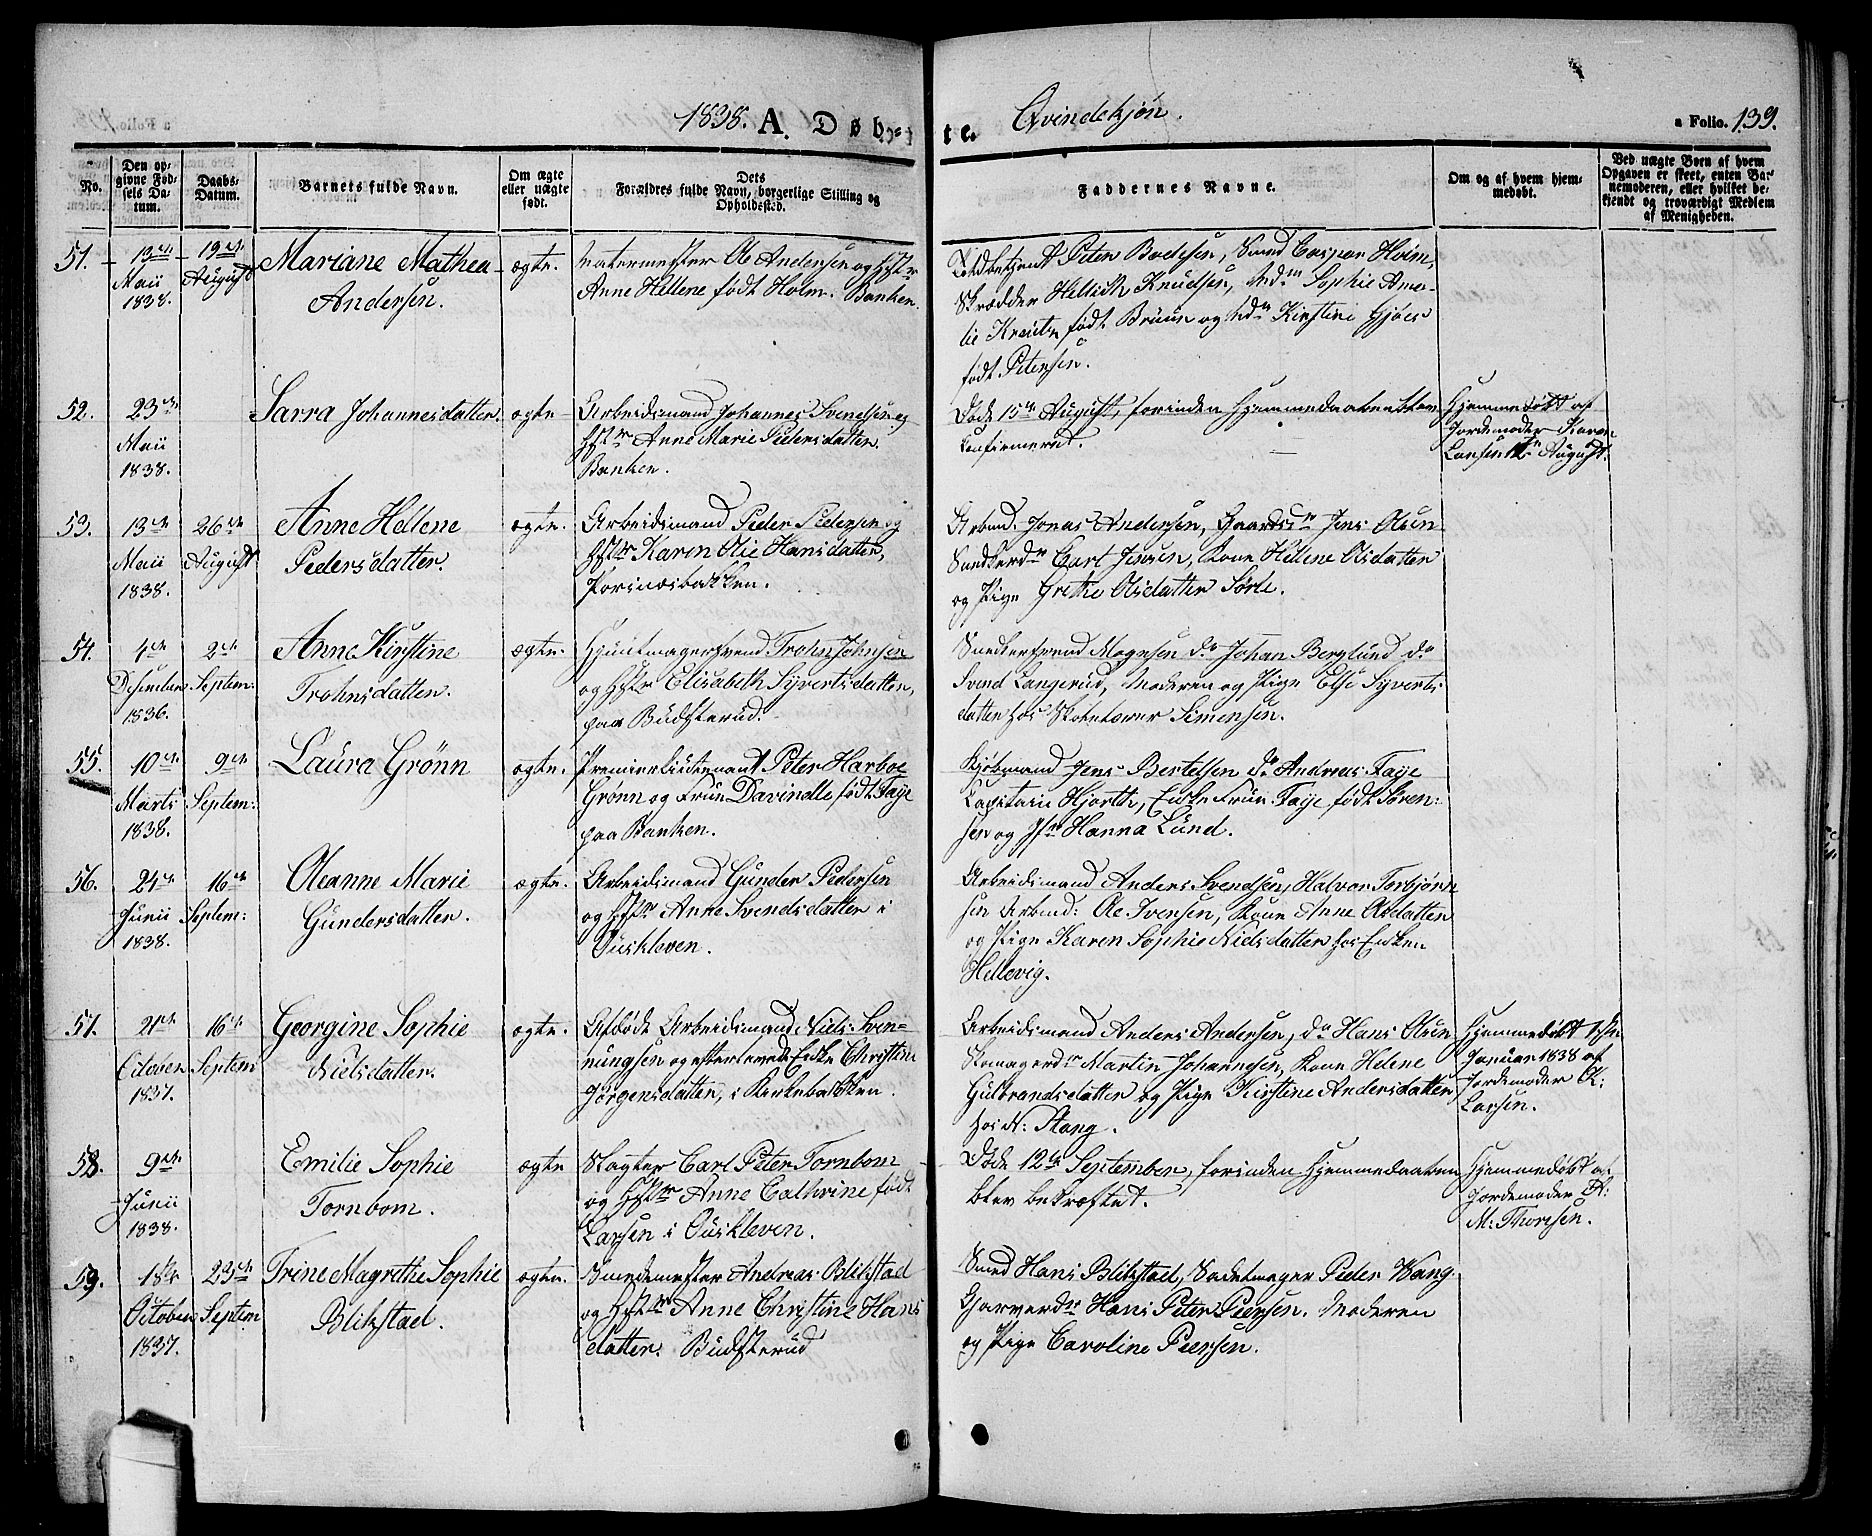 1838. A. Døbte. Qvindekjøn. a Folio. 139.
No.
Den opgivne Fødsels Datum.
Daabs-Datum.
Barnets fulde Navn.
Om ægte eller uægte født.
Dets Forældres fulde Navn, borgerlige Stilling og Opholdssted.
Faddernes Navne.
Om og af hvem hjemmedøbt.
Ved uægte Børn af hvem Opgaven er skeet, enten Barnemoderen, eller hvilket bekjendt og troværdigt Medlem af Menigheden.
51. 13de Maii 1838. 19de August
Mariane Mathea
Andersen.
ægte.
Ole Andersen og Hstr
Anne Hellene født Holm. Banken.
Peter Boelsen, Smed Caspar Holm,
Skrædder Knudsen, Md. Sophie Ame-
lie født Bruun og Md. Kirstine
født Petersen.
52. 23de Maii 1838.
Sarra Johannesdatter.
ægte
Arbeidsmand Johannes Svendsen og
Hstr Anne Marie Pedersdatter.
Banken.
Døde 15de August, forinden Hjemmedaaben blev
confirmeret.
Hjemmedøbt af
Jordemoder Karen
Larsen August.
53. 13de Maii 1838. 26de August
Anne Hellene
Pedersdatter.
ægte.
Arbeidsmand Peder Pedersen og
Hstr Karen Olie Hansdatter,
Porsnæsbakken.
Arbmd. Jonas Andersen, Jens Olsen
Carl Jensen, Kone Hellene Olsdatter
og Pige Grethe Olsdatter Sørle.
54. 4de December 1836. 2den Septem:
Anne Kirstine
Trohnsdatter.
ægte.
Hjuulmagersvend Trohn Johnsen
og Hstr Elisabeth Syvertsdatter,
paa Budsterud.
Snedkersvend Mogensen do Johan Berglund do
Svend Langerud, Moderen og Pige Else Syverts-
datter hos Simensen.
55. 10de Marts 1838. 9de Septem:
Laura Grønn
ægte.
Premierlieutenant Peter Harboe
Grønn og Frue Davinelle født Faye
paa Banken.
Kjøbmand Jens Bertelsen do Andreas Faye
Capitain Hjorth, Enkefrue Faye født Søren-
sen og Jfr Hanna Lund.
56. 24de Junii 1838. 16de Septem:
Oleanne Marie
Gundersdatter.
ægte.
Arbeidsmand Gunder Pedersen
og Hstr Anne Svendsdatter i
Ouskleven.
Arbeidsmand Anders Svendsen, Halvor Torbjørn-
sen Arbmd: Ole Ivensen, Kone Anne Olsdatter
og Pige Karen Sophie Nielsdatter hos Enken
Hellevig.
57. 21de October 1837. 16de Septem
Georgine Sophie
Nielsdatter.
ægte.
Afdøde Arbeidsmand Niels Sven-
nungsen og efterlevende Enke Christine
Jørgensdatter, i Kirkebakken.
Arbeidsmand Anders Andersen, do Hans Olsen
Skomagerd Martin Johannesen, Kone Helene
Gulbrandsdatter og Pige Kirstine Andersdatter
hos N: Stang.
Hjemmedøbt 1ste
Januar 1838 af
Jordemoder K:
Larsen.
58. 9de Junii 1838.
Emilie Sophie
Tornbom.
ægte
Slagter Carl Peter Tornbom
og Hstr Anne Cathrine født
Larsen i Ouskleven.
Døde 12te September, forinden Hjemmedaaben
blev bekræftet.
Hjemmedøbt af
Jordemoder A:
M: Thoresen.
59. 18de October 1837. 23de Septem
Trine Magrethe Sophie
Blikstad.
ægte.
Smedemester Andreas Blikstad
og Hstr Anne Christine Hans
datter. Budsterud
Smed Hans Blikstad, Sadelmager Peder Wang
Garverd Hans Peter Peersen. Moderen
og Pige Caroline Peersen.